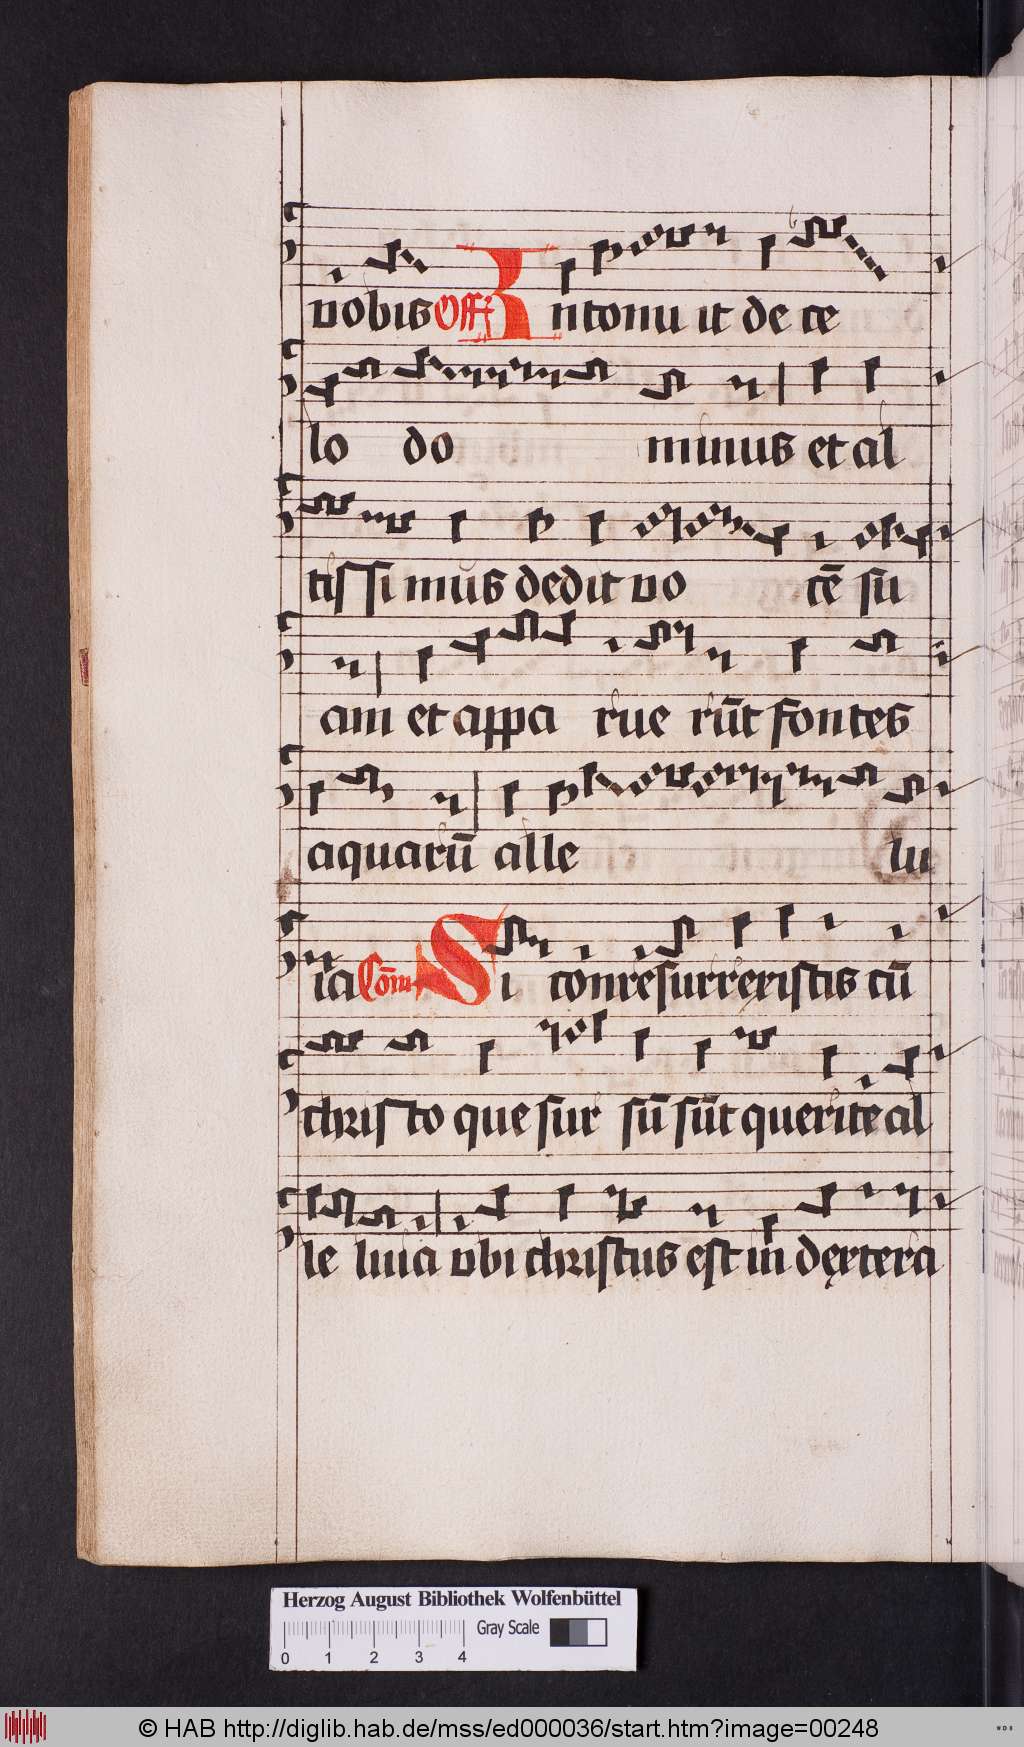 vobis Off Intonu it de ce
lo do minus et al
tissimus dedit vo cē su
am et appa rue rūt fontes
aquarū alle lu
ia Cōm Si conresurrexistis cū
christo que sur sū sūt querite al
le luia vbi christus est in dextera
Herzog August Bibliothek Wolfenbüttel
Gray Scale
0 1 2 3 4
© HAB http://diglib.hab.de/mss/ed000036/start.htm?image=00248